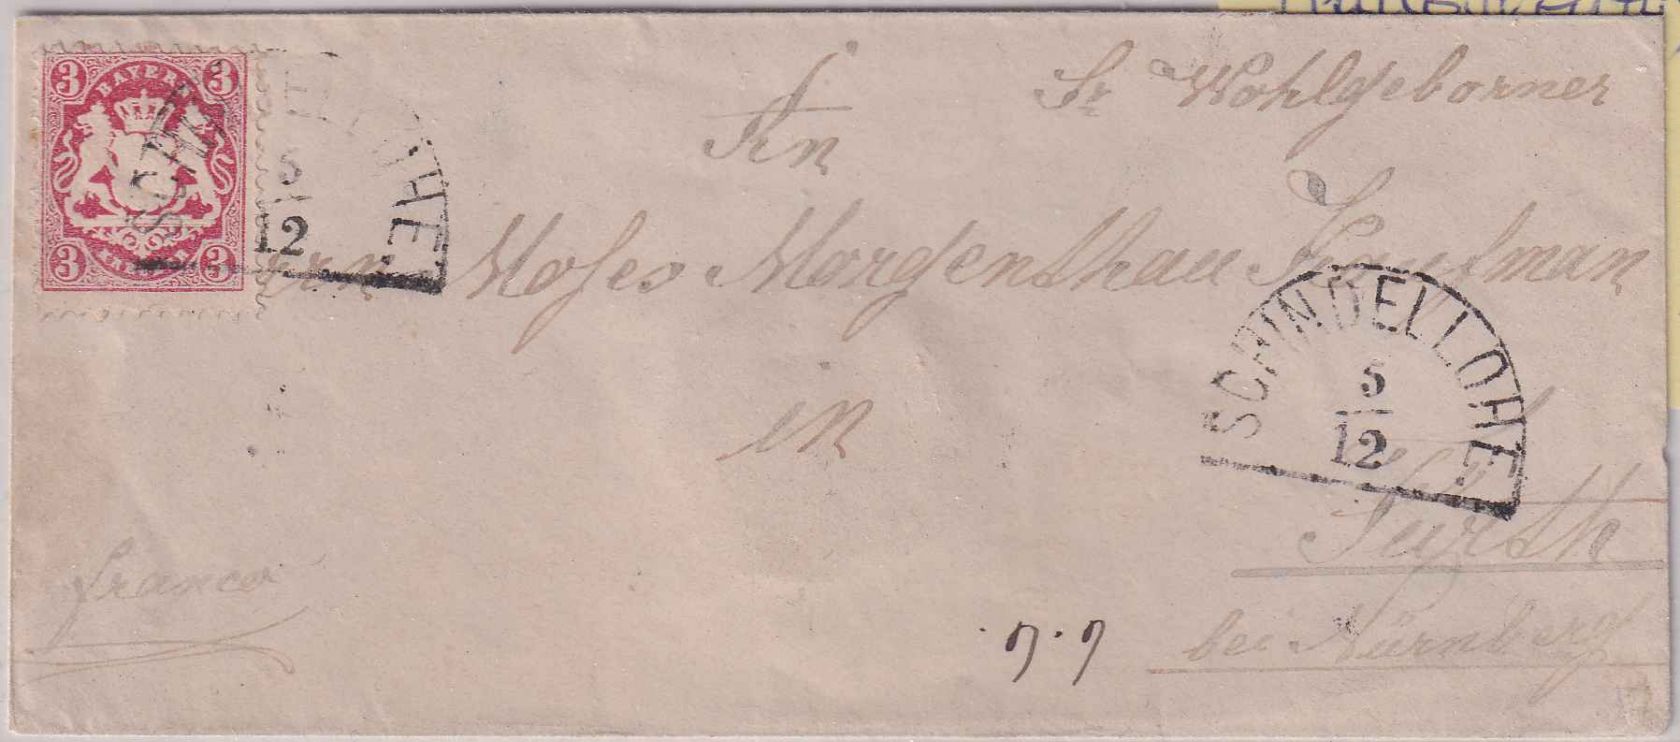 3 BAYERN 3
3 KREUZER 3
SCHINDELLOHE
5
12
Sr Wohlgeborner
An
Herrn Moses Morgenthau Kaufman
in
SCHINDELLOHE
5
12
Fürth
bei Nürnberg
franco